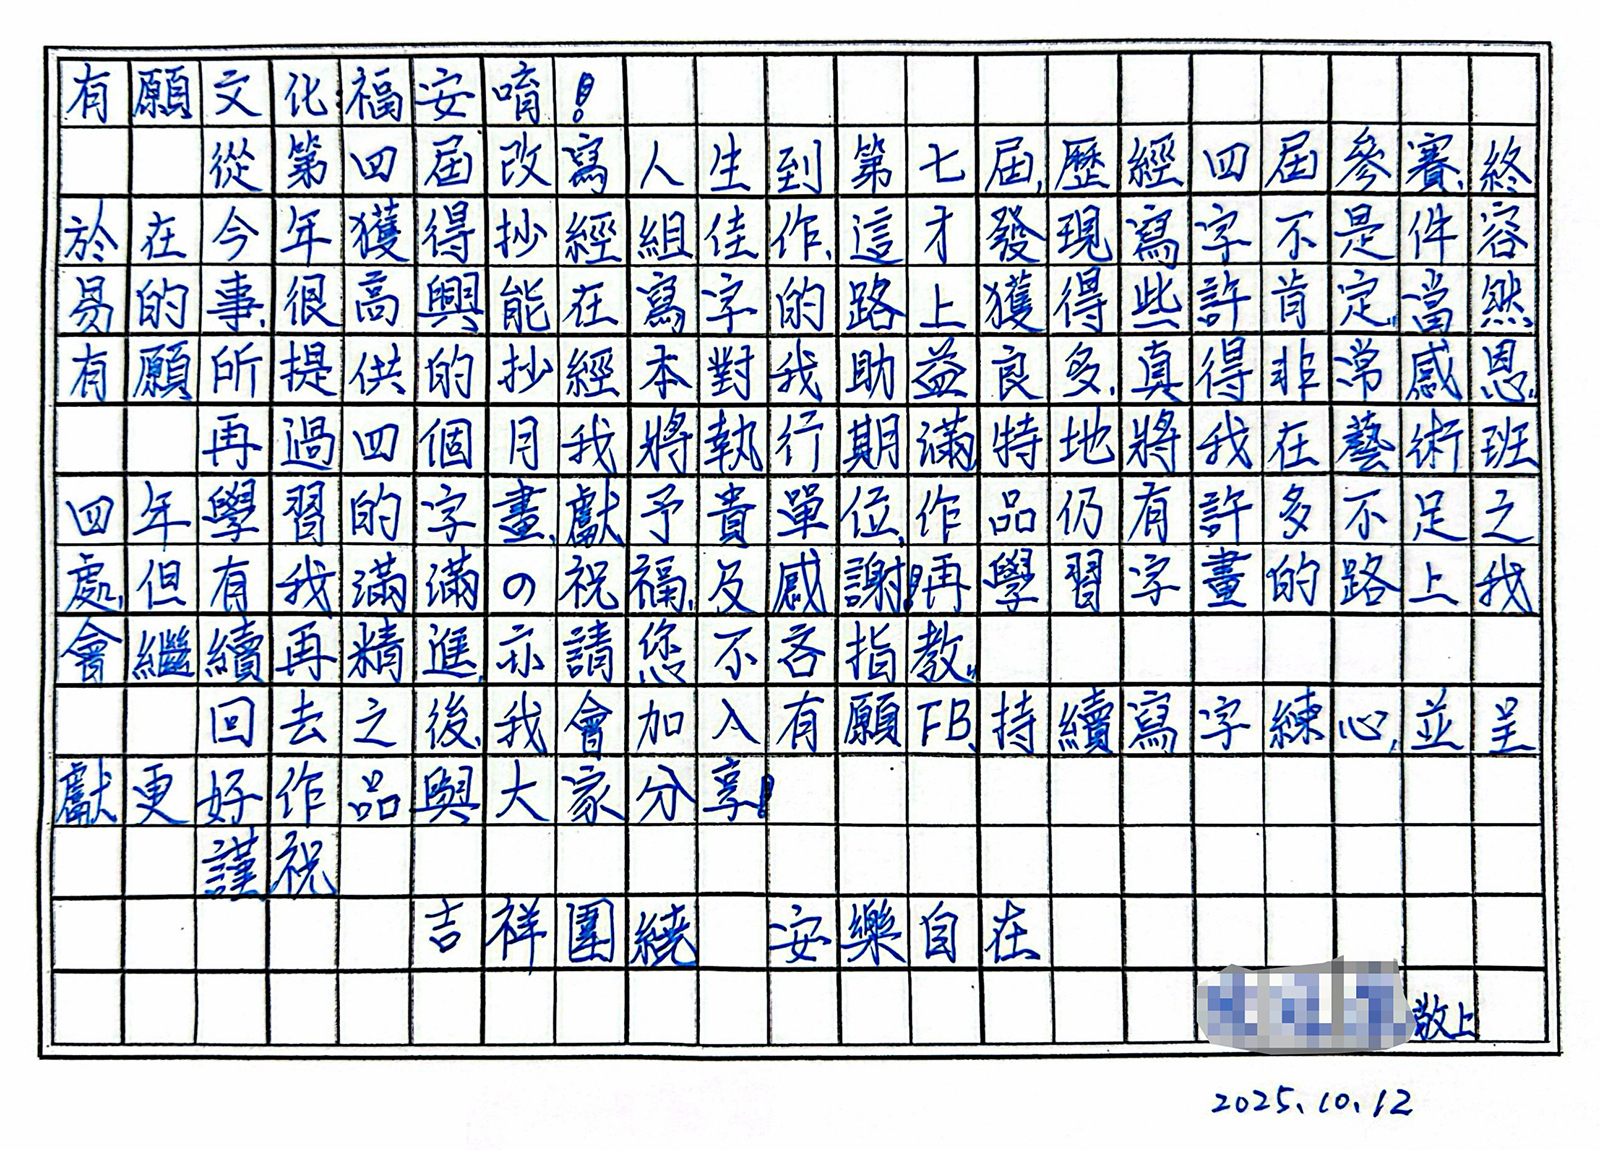 有願文化福安唷!
從第四屆改寫人生到第七屆,歷經四屆參賽,終
於在今年獲得抄經組佳作,這才發現寫字不是件容
易的事,很高興能在寫字的路上獲得些許肯定,當然
有願所提供的抄經本對我助益良多,真得非常感恩。
再過四個月我將執行期滿,特地將我在藝術班
四年學習的字畫,獻予貴單位,作品仍有許多不足之
處,但有我滿滿の祝福,及感謝!再學習字畫的路上我
會繼續再精進,亦請您不吝指教。
回去之後,我會加入有願FB,持續寫字練心,並呈
獻更好作品與大家分享!
謹祝
吉祥圍繞 安樂自在
敬上
2025.10.12